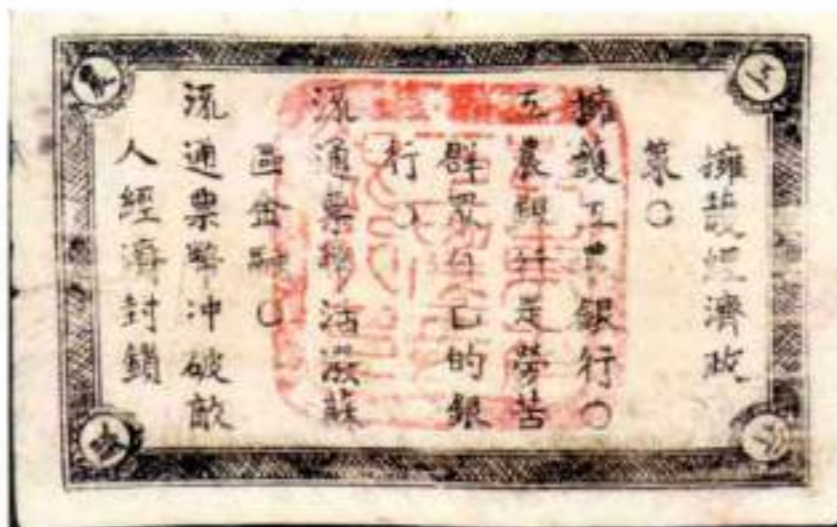 擁護經濟政
策○
擁護工農銀行○
工農銀行是勞苦
群眾自己的銀
行○
流通票幣活潑蘇
區金融○
流通票幣冲破敵
人經濟封鎖
工
農